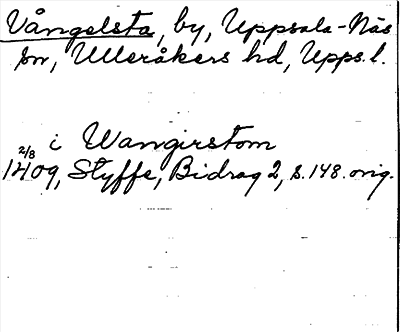 Vångelsta, by, Uppsala-Näs
sn, Ulleråkers hd, Upps. l.
i Wangirstom
2/8 1409, Styffe, Bidrag 2, s. 148. orig.